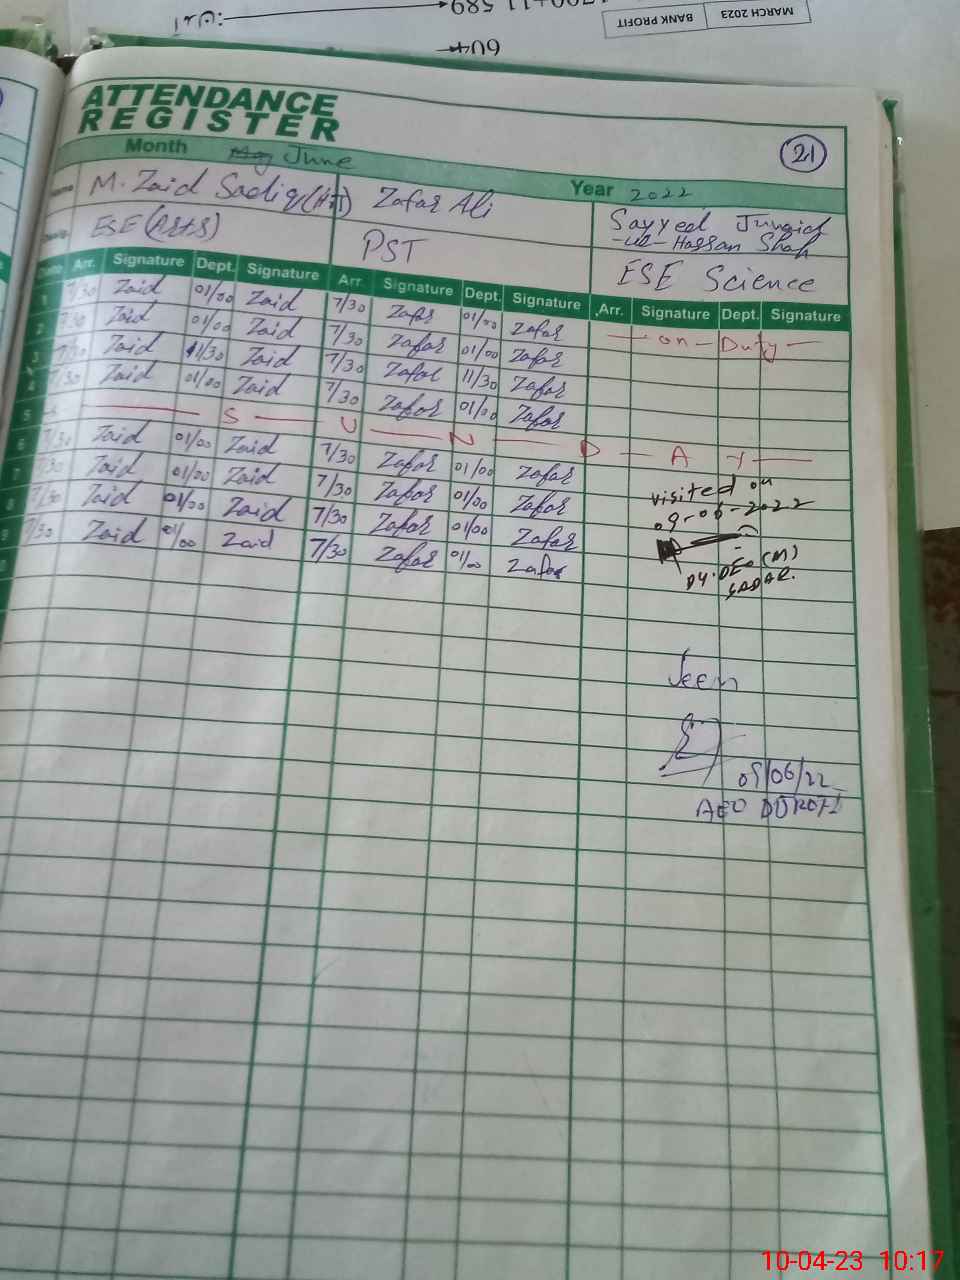 589
604
MARCH 2023 BANK PROFIT
ATTENDANCE
REGISTER
21
Month May June Year 2022
Name M. Zaid Sadiq (H.T) Zafar Ali Sayyed Junaid
-ul- Hassan Shah
ESE (Arts) PST ESE Science
Date Arr. Signature Dept. Signature Arr. Signature Dept. Signature Arr. Signature Dept. Signature
1 7/30 Zaid 01/00 Zaid 7/30 Zafar 01/00 Zafar — on — Duty —
2 7/30 Zaid 01/00 Zaid 7/30 Zafar 01/00 Zafar
3 7/30 Zaid 11/30 Zaid 7/30 Zafar 11/30 Zafar
4 7/30 Zaid 01/00 Zaid 7/30 Zafar 01/00 Zafar
5 — S — U — N — D — A — Y —
6 7/30 Zaid 01/00 Zaid 7/30 Zafar 01/00 Zafar
7 7/30 Zaid 01/00 Zaid 7/30 Zafar 01/00 Zafar
8 7/30 Zaid 01/00 Zaid 7/30 Zafar 01/00 Zafar
9 7/30 Zaid 01/00 Zaid 7/30 Zafar 01/00 Zafar
visited on
09-06-2022
DY. DEO (M)
SADAR.
Seen
09/06/22
AEO
10-04-23 10:17